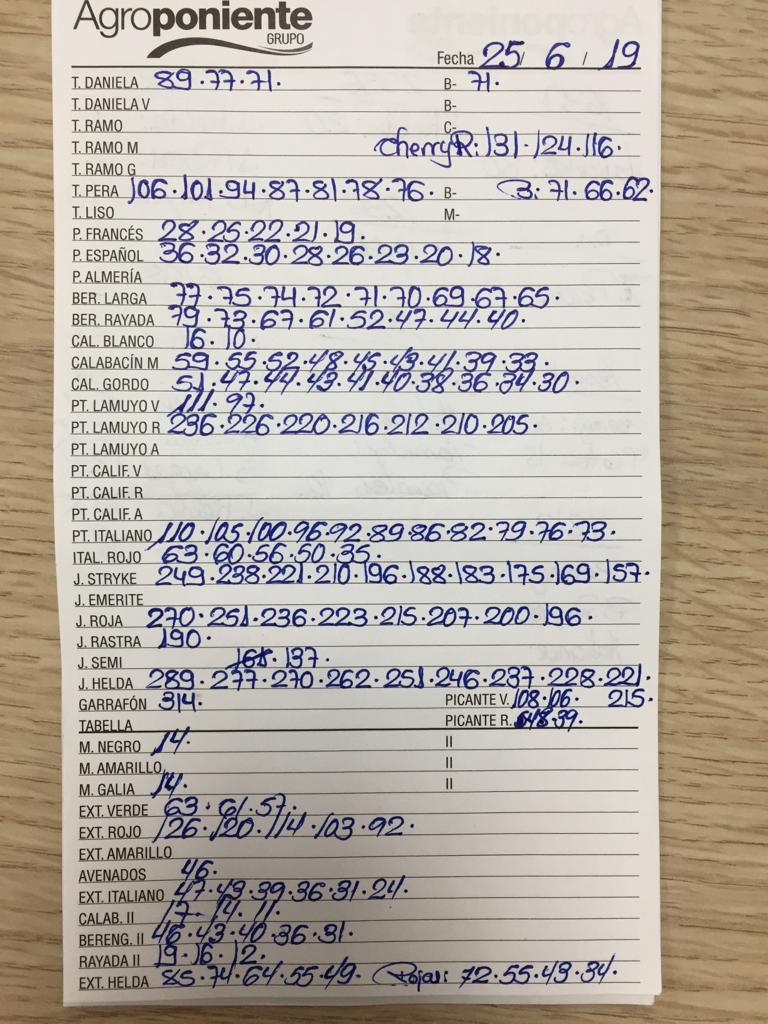 Agroponiente
GRUPO
Fecha 25/ 6 / 19
T. DANIELA 89.77.71. B- 71.
T. DANELA V B-
T. RAMO C-
T. RAMO M cherry R: 131.124.116.
T. RAMO G
T. PERA 106.101.94.87.81.78.76. B- B: 71.66.62.
T. LISO M-
P. FRANCÉS 28.25.22.21.19.
P. ESPAÑOL 36.32.30.28.26.23.20.18.
P. ALMERÍA
BER. LARGA 77.75.74.72.71.70.69.67.65.
BER. RAYADA 79.73.67.61.52.47.44.40.
CAL. BLANCO 16.10.
CALABACÍN M 59.55.52.48.45.43.41.39.33.
CAL. GORDO 51.47.44.43.41.40.38.36.34.30.
PT. LAMUYO V 111.97.
PT. LAMUYO R 236.226.220.216.212.210.205.
PT. LAMUYO A
PT. CALIF. V
PT. CALIF. R
PT. CALIF. A
PT. ITALIANO 110.105.100.96.92.89.86.82.79.76.73.
ITAL. ROJO 63.60.56.50.35.
J. STRYKE 249.238.221.210.196.188.183.175.169.157.
J. EMERITE
J. ROJA 270.251.236.223.215.207.200.196.
J. RASTRA 190.
J. SEMI 137.
J. HELDA 289.277.270.262.251.246.237.228.221.
GARRAFÓN 314. PICANTE V. 108.106. 215.
TABELLA PICANTE R. 39.
M. NEGRO 14. II
M. AMARILLO II
M. GALIA 14. II
EXT. VERDE 63.61.57.
EXT. ROJO 126.120.114.103.92.
EXT. AMARILLO
AVENADOS 46.
EXT. ITALIANO 47.43.39.36.31.24.
CALAB. II 17.14.11.
BERENG. II 46.43.40.36.31.
RAYADA II 19.16.12.
EXT. HELDA 85.74.64.55.49. Rojas: 72.55.43.34.